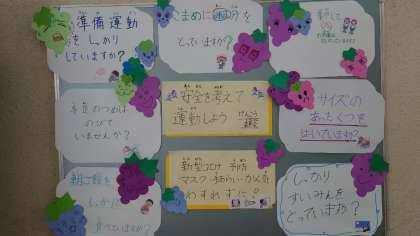 準備運動
をしっかり
していますか?
こまめに水分を
とっていますか?
手足のつめは
のびて
いませんか?
安全を考えて
運動しよう
サイズの
あったくつを
はいていますか?
朝ごはんを
しっかり
食べていますか?
新型コロナ 予防
マスク・手あらい・
わすれずに!
しっかり
すいみんを
とっていますか?